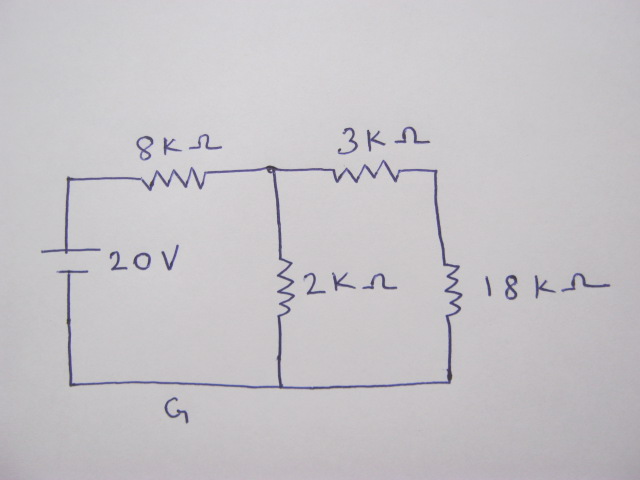 8KΩ
3KΩ
20V
2KΩ
18KΩ
G